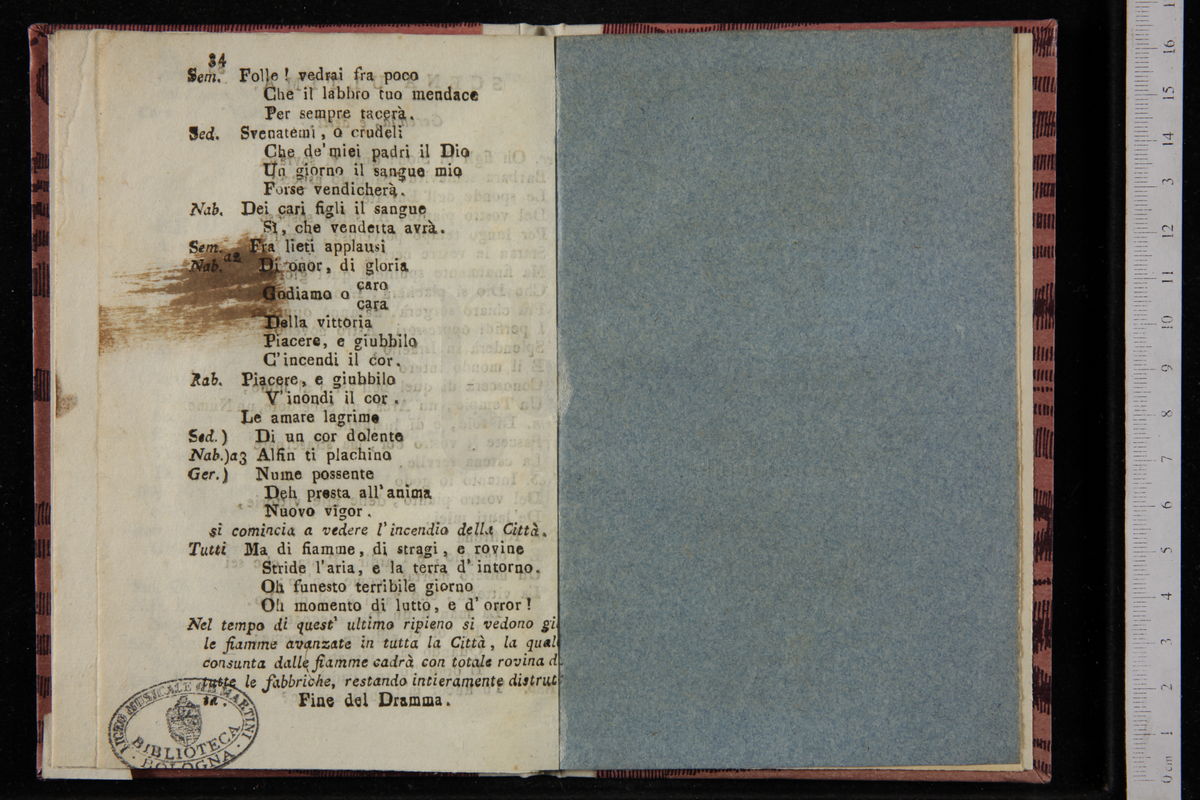 34
Sem. Folle! vedrai fra poco
Che il labbro tuo mendace
Per sempre tacerà.
Sed. Svenatemi, o crudeli
Che de' miei padri il Dio
Un giorno il sangue mio
Forse vendicherà.
Nab. Dei cari figli il sangue
Sì, che vendetta avrà.
Sem. Fra lieti applausi
Nab. a2 Di onor, di gloria
Godiamo o caro
cara
Della vittoria
Piacere, e giubbilo
C'incendi il cor.
Rab. Piacere, e giubbilo
V'inondi il cor.
Le amare lagrime
Sed.) Di un cor dolente
Nab.)a3 Alfin ti plachino
Ger.) Nume possente
Deh presta all'anima
Nuovo vigor.
si comincia a vedere l'incendio della Città.
Tutti Ma di fiamme, di stragi, e rovine
Stride l'aria, e la terra d'intorno.
Oh funesto terribile giorno
Oh momento di lutto, e d'orror!
Nel tempo di quest' ultimo ripieno si vedono
le fiamme avanzate in tutta la Città, la
consunta dalle fiamme cadrà con totale rovina
tutte le fabbriche, restando intieramente
Fine del Dramma.
LICEO MUSICALE G.B. MARTINI
BIBLIOTECA
BOLOGNA
0 cm 1 2 3 4 5 6 7 8 9 10 11 12 3 14 15 16